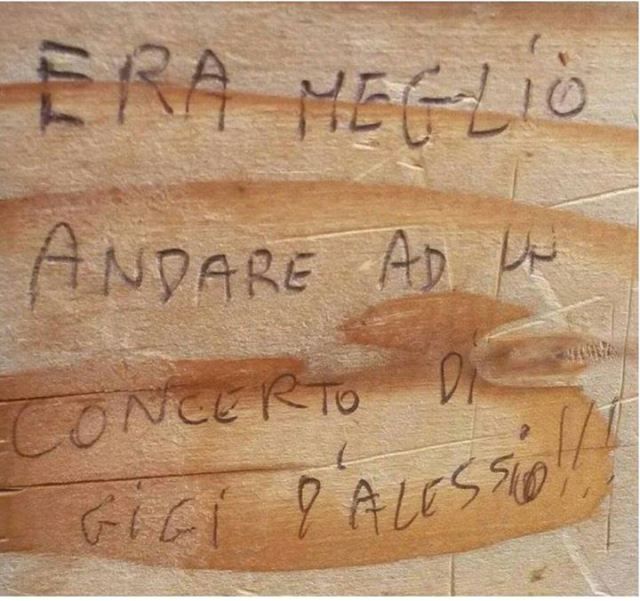 ERA MEGLIO
ANDARE AD UN
CONCERTO Di
GiGi D'ALESSiO!!!